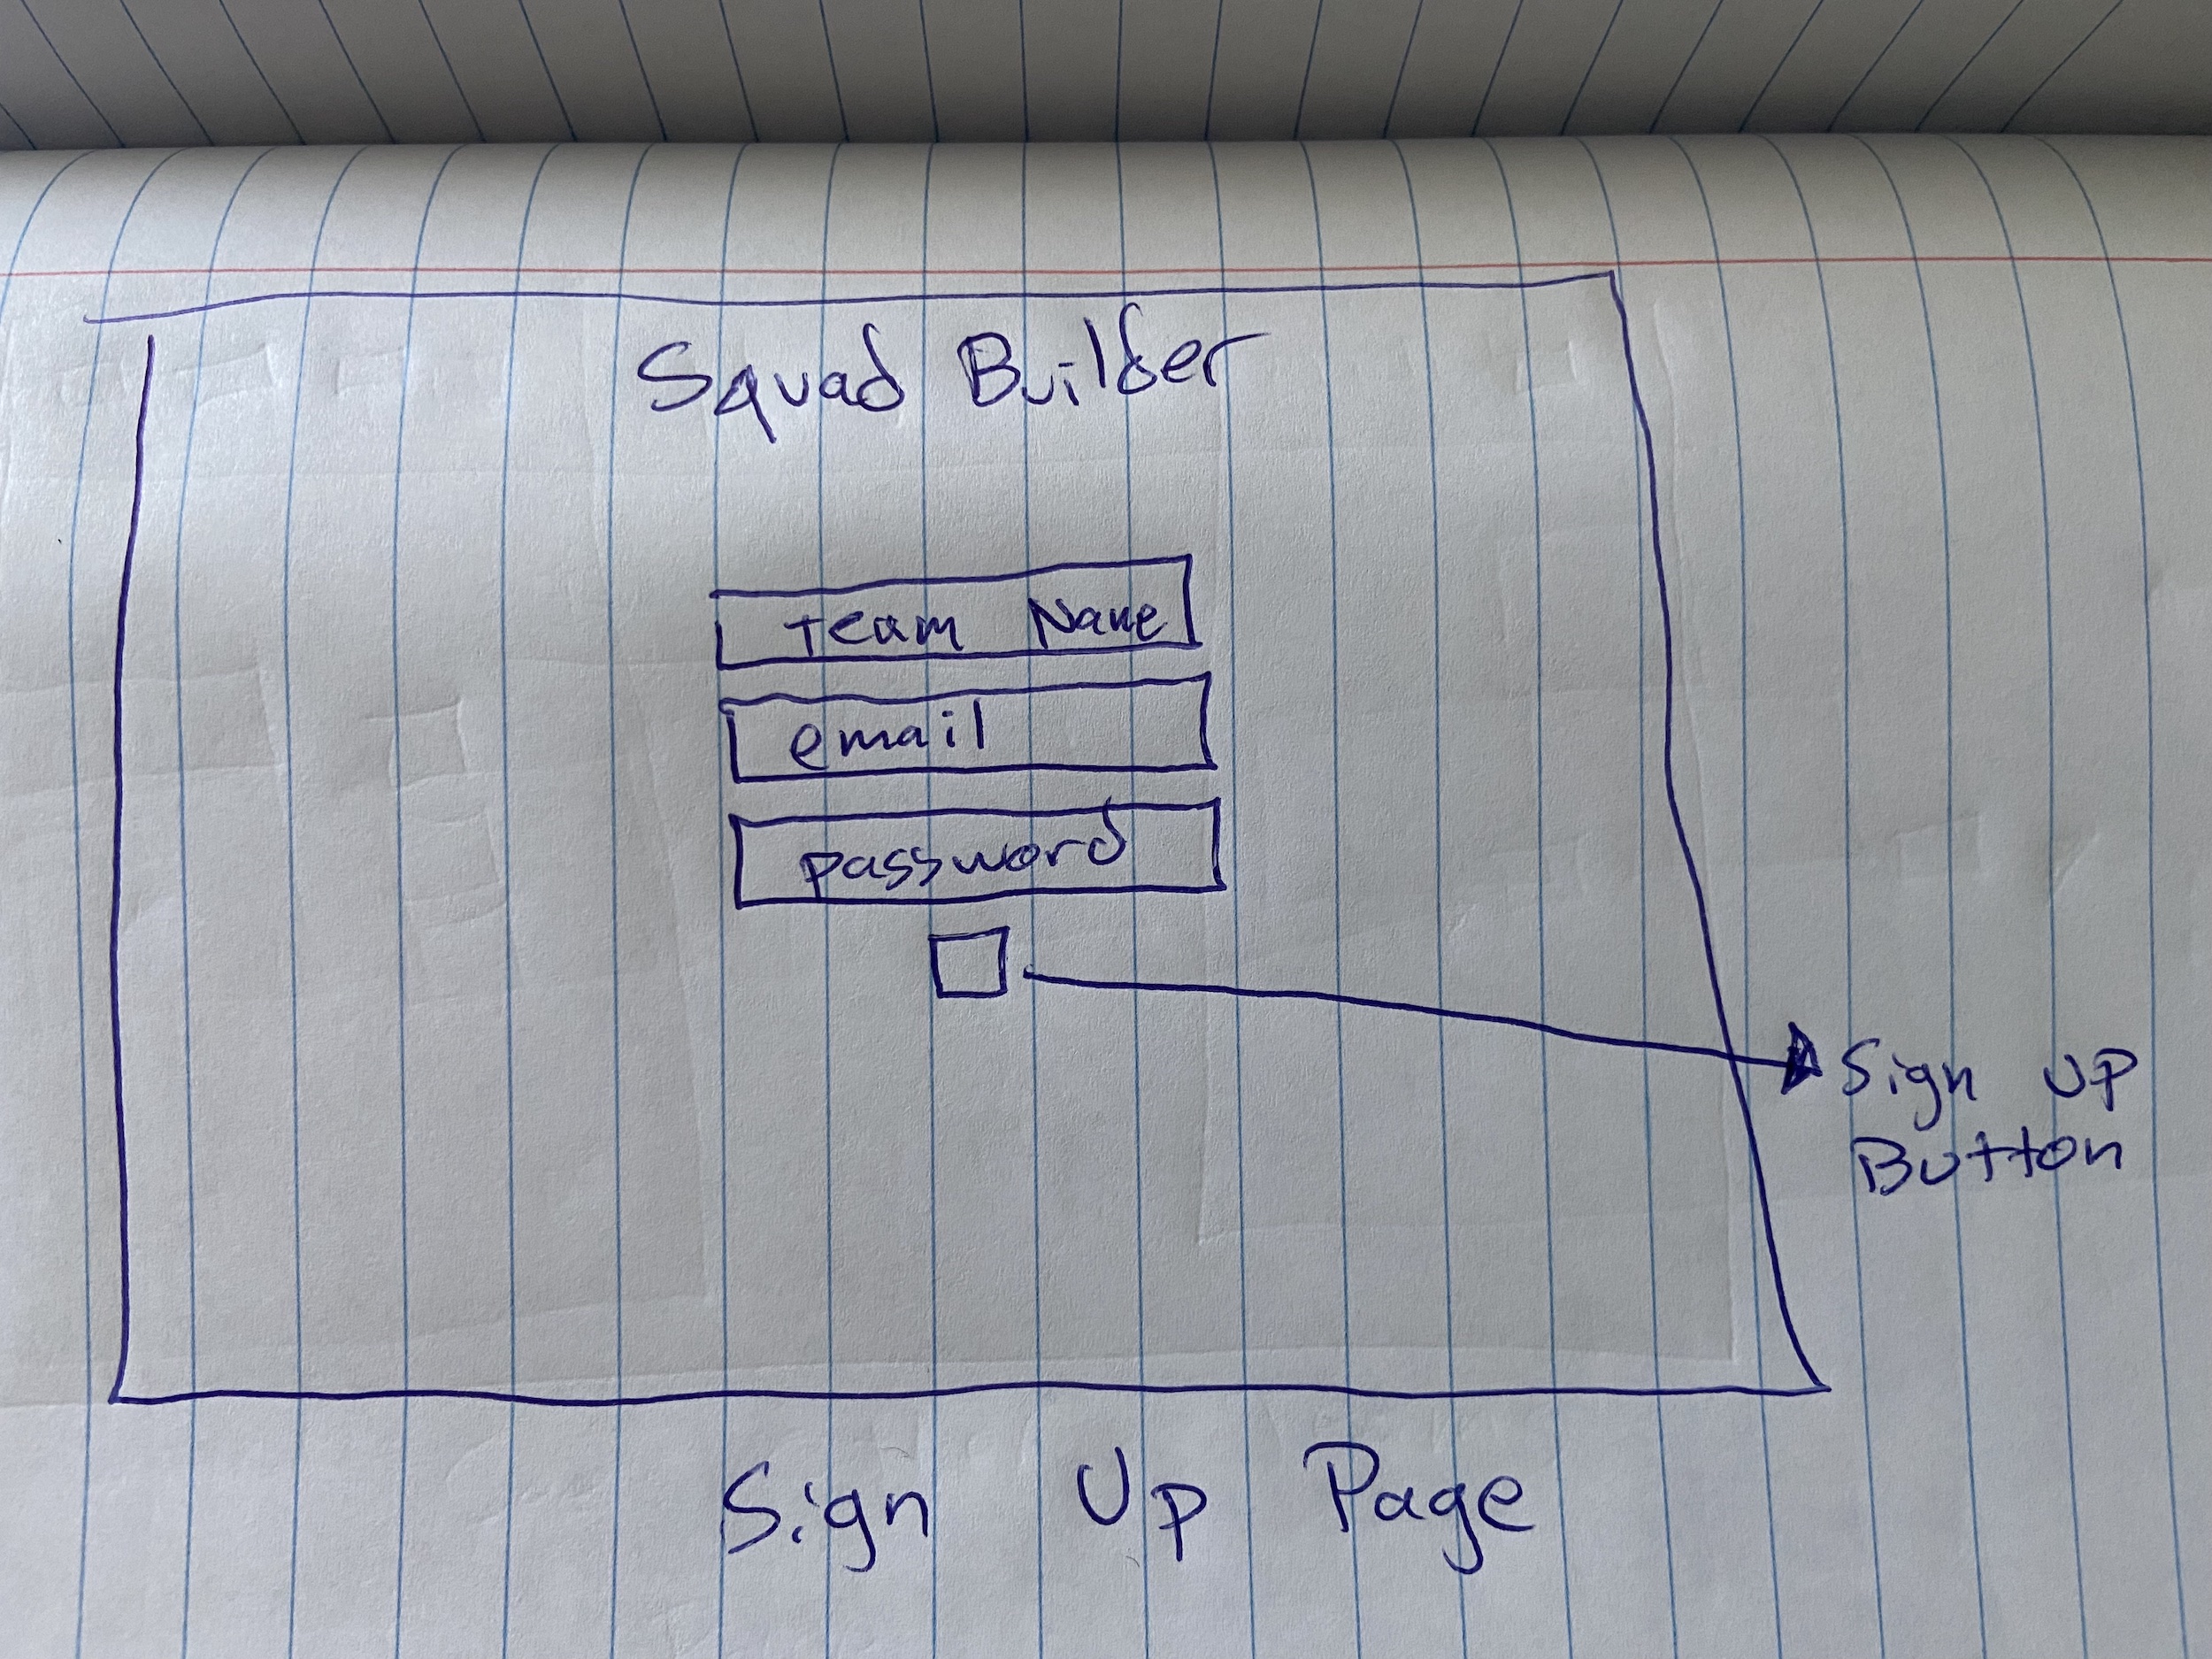 Squad Builder
Team Name
email
password
Sign UP
Button
Sign Up Page